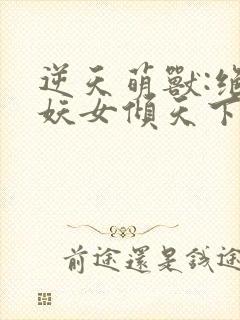 逆天萌獸:絕
妖女傾天下
前途還是錢途